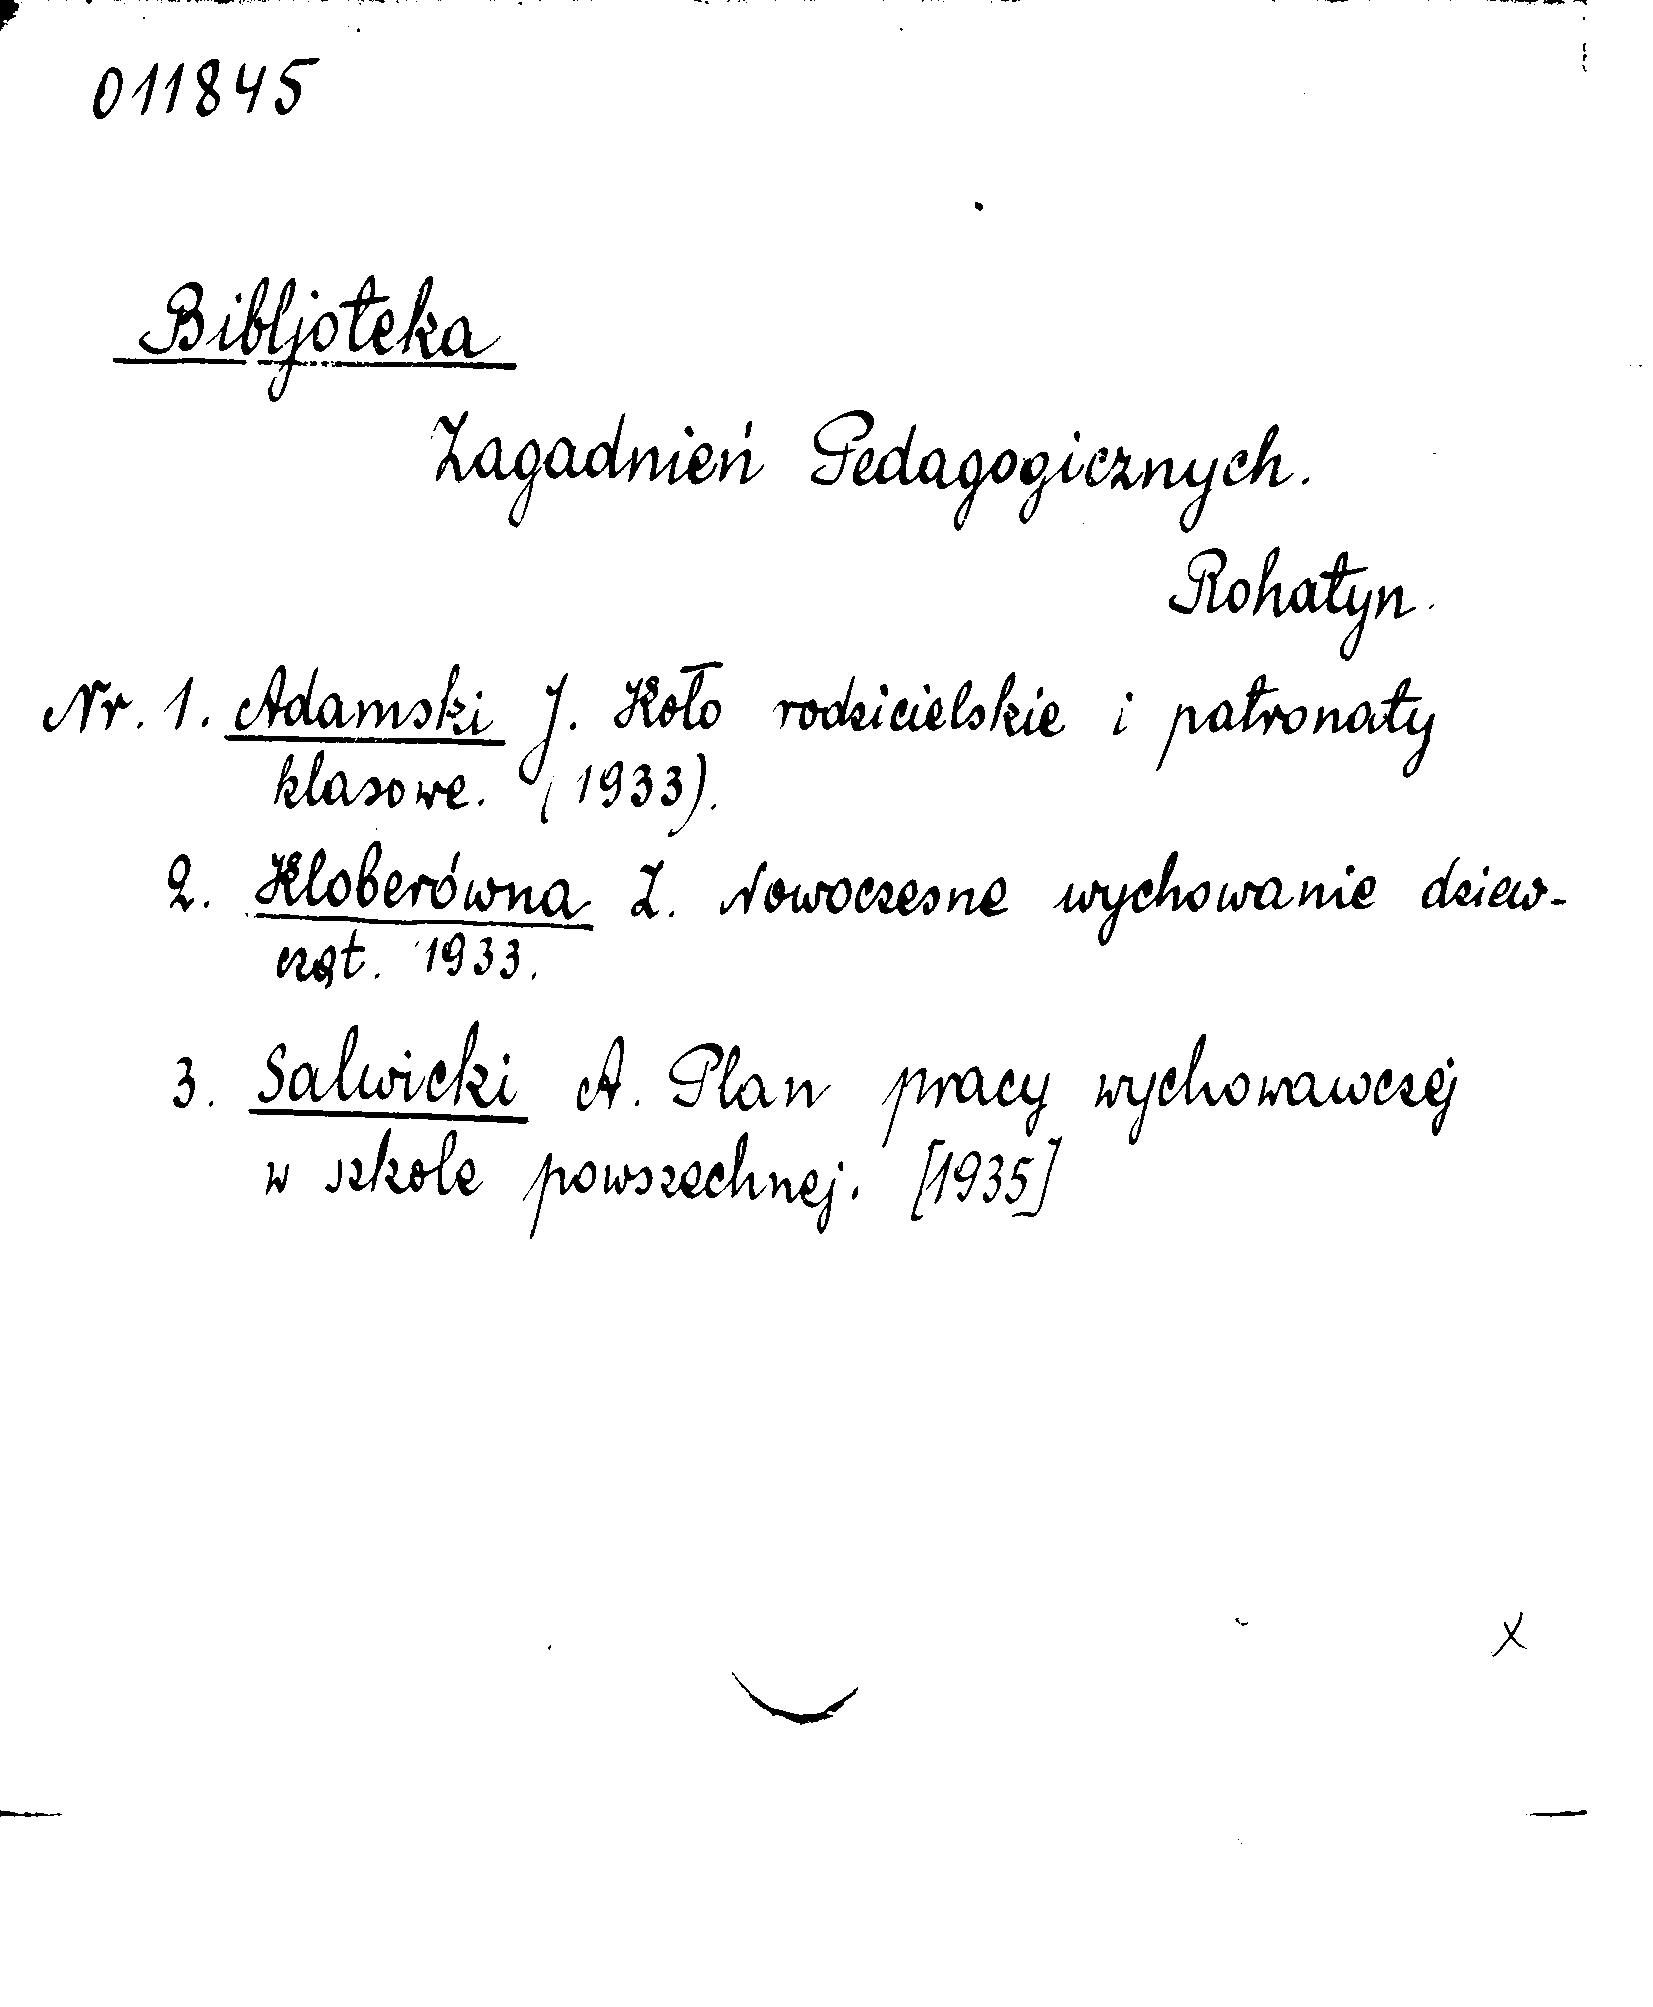 011845
Bibljoteka
Zagadnień Pedagogicznych.
Rohatyn.
Nr. 1. Adamski J. Koło rodzicielskie i patronaty
klasowe. (1933).
2. Kloberówna Z. Nowoczesne wychowanie dziew-
cząt. 1933.
3. Salwicki A. Plan pracy wychowawczej
w szkole powszechnej. [1935]
x